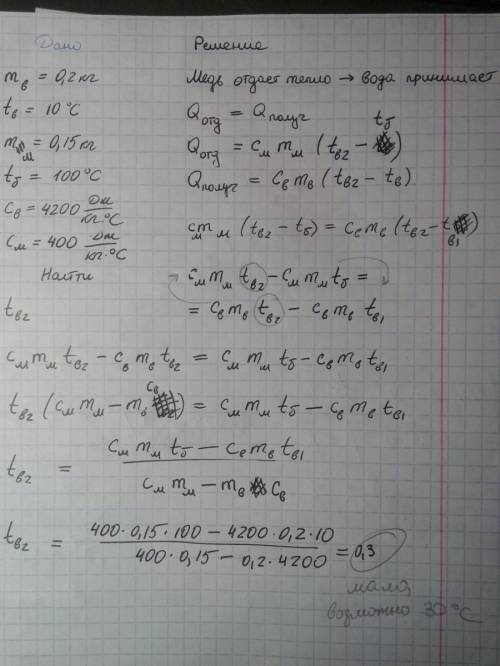 Дано
m_в = 0,2 кг
t_в = 10 °C
m_м = 0,15 кг
t_б = 100 °C
c_в = 4200 Дж/кг·°C
c_м = 400 Дж/кг·°C
Найти
t_в2
Решение
Медь отдает тепло → вода принимает
Q_отд = Q_получ
Q_отд = c_м m_м (t_в2 − t_б)
Q_получ = c_в m_в (t_в2 − t_в)
c_м m_м (t_в2 − t_б) = c_в m_в (t_в2 − t_в1)
c_м m_м t_в2 − c_м m_м t_б =
= c_в m_в t_в2 − c_в m_в t_в1
c_м m_м t_в2 − c_в m_в t_в2 = c_м m_м t_б − c_в m_в t_в1
t_в2 (c_м m_м − m_в c_в) = c_м m_м t_б − c_в m_в t_в1
t_в2 = (c_м m_м t_б − c_в m_в t_в1) / (c_м m_м − m_в c_в)
t_в2 = (400·0,15·100 − 4200·0,2·10) / (400·0,15 − 0,2·4200) = 0,3
мало,
возможно 30 °C